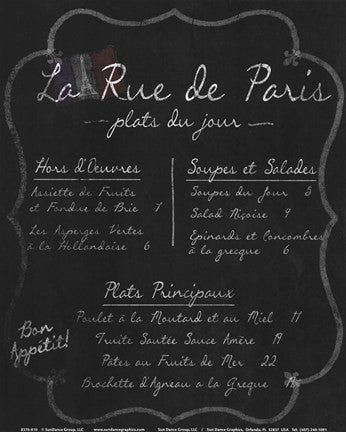 La Rue de Paris
plats du jour
Hors d'Oeuvres
Assiette de Fruits
et Fondue de Brie 7
Les Asperges Vertes
à la Hollandaise 6
Soupes et Salades
Soupes du Jour 5
Salad Niçoise 9
Epinards et Concombres
à la grecque 6
Plats Principaux
Poulet à la Moutard et au Miel 17
Truite Sautée Sauce Amère 19
Pates au Fruits de Mer 22
Brochette d'Agneau a la Greque
Bon
Appétit!
© SunDance Group, LLC / www.sundancegraphics.com Sun Dance Group, LLC / Sun Dance Graphics, Orlando, FL 32837 USA Tel: (407) 240-1091